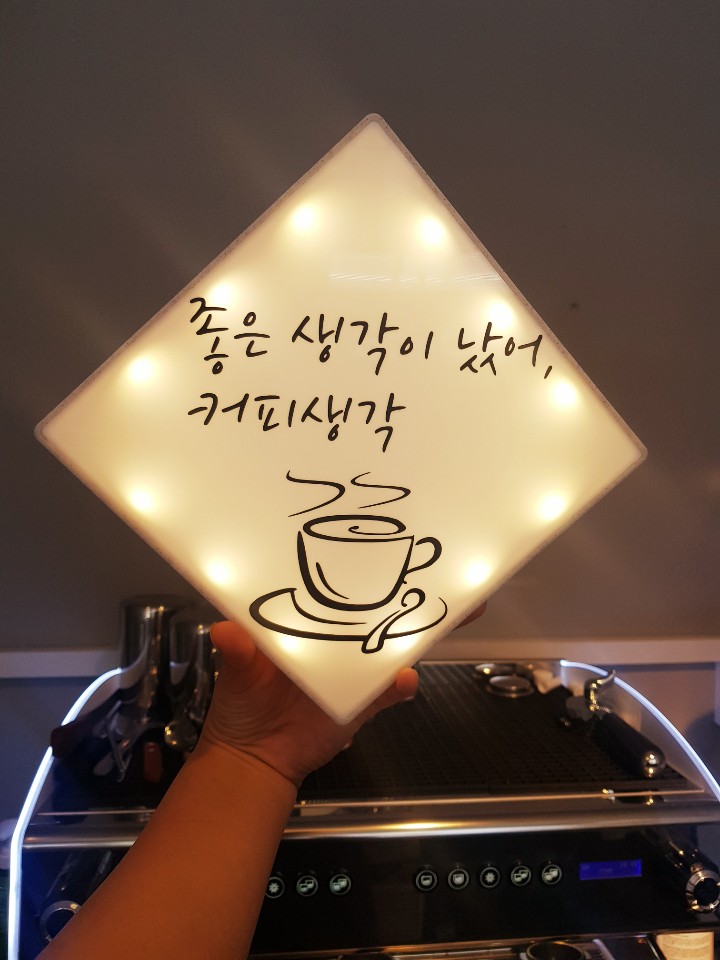 좋은 생각이 났어,
커피생각